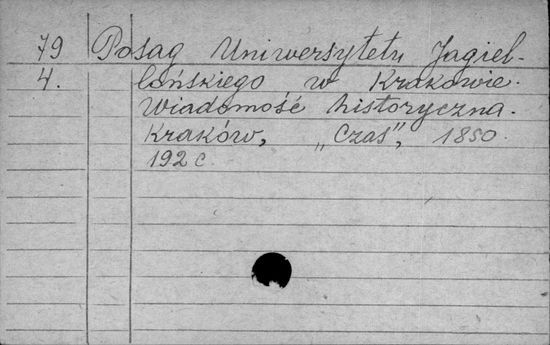 79 Posag Uniwersytetu Jagiel-
4. lońskiego w Krakowie.
Wiadomość historyczna.
Kraków, "Czas", 1850.
192 c.